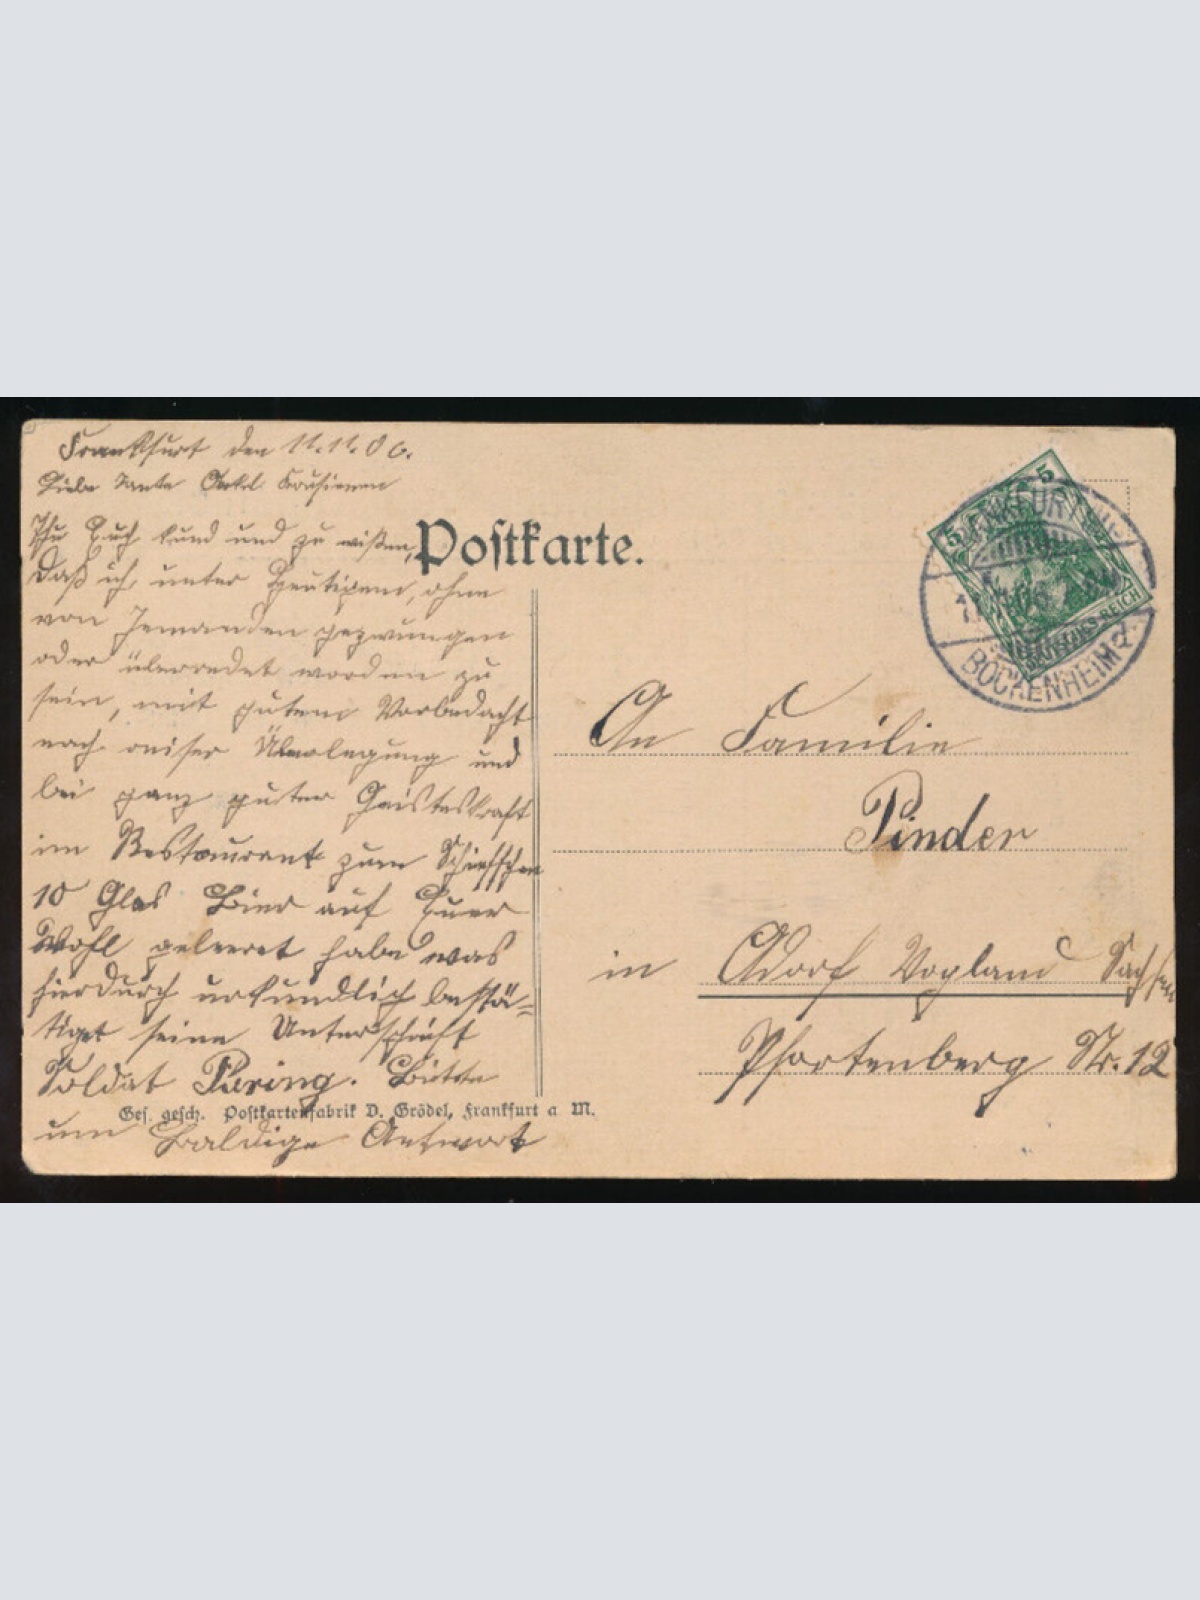 Frankfurt den 11.11.06.
Liebe Tante Onkel Kousienen
Thu Euch kund und zu wißen,
daß ich, unter Heutigem, ohne
von Jemanden gezwungen
oder überredet worden zu
sein, mit gutem Vorbedacht
nach reifer Überlegung und
bei ganz guter Geisteskraft
im Restaurant zum Schiffchen
10 Glas Bier auf Euer
Wohl geleeret habe was
hierdurch urkundlich bestä-
tiget seine Unterschrift
Soldat Püring. Bitte
um Baldige Antwort
Ges. gesch. Postkartenfabrik D. Grödel, Frankfurt a M.
Postkarte.
5 5
DEUTSCHES REICH
FRANKFURT
BOCKENHEIM 2.
An Familie
Pinder
in Adorf Vogland Sachsen
Pfortenberg Str. 12